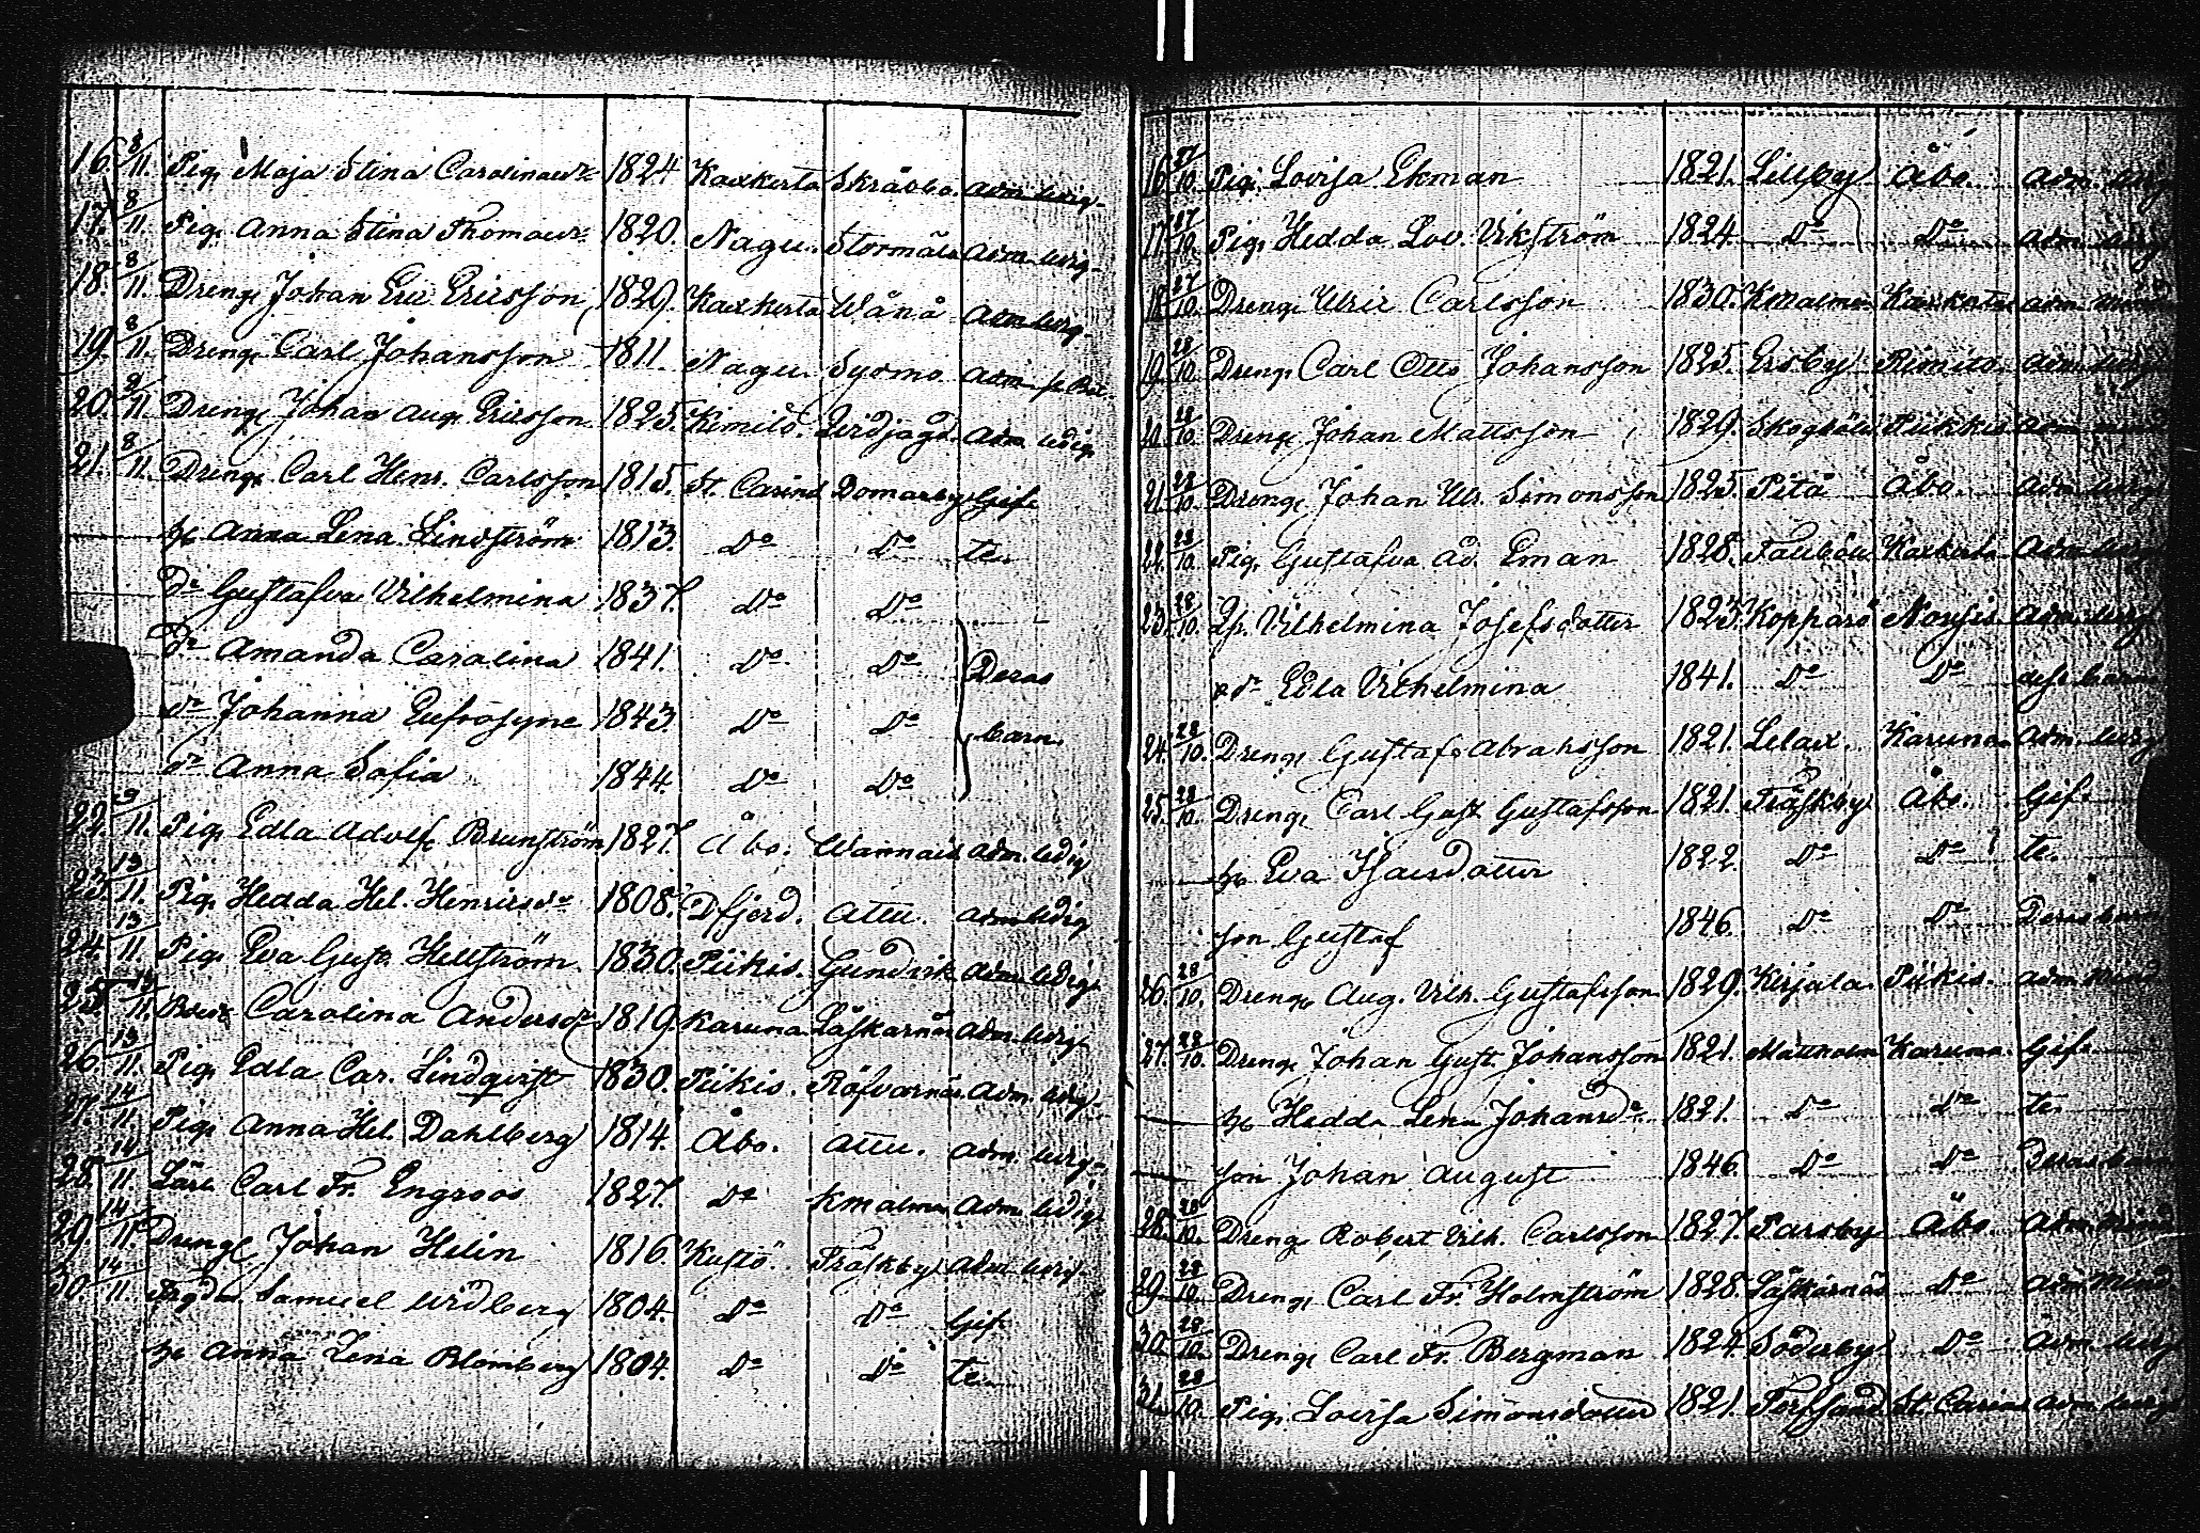 16. 8/11. Pig. Maja Stina Carolinaudr 1824 Kaxkerta Skräbbo adm. ledig
17. 8/11. Pig. Anna Stina Thomasdr 1820. Nagu. Stormälö adm. ledig
18. 8/11. Dreng. Johan Eric Ericsson 1829. Kaxkerta Wånå adm. ledig
19. 8/11. Dreng. Carl Johansson 1811. Nagu Sydmo adm.
20. 8/11. Dreng. Johan Aug. Ericsson 1825. Kimito. adm. ledig
21. 8/11. Dreng. Carl Henr. Carlsson 1815. St. Carins Domarby Gif-
h. Anna Lena Lindström 1813. Do Do te.
dr Gustafva Vilhelmina 1837. Do Do
dr Amanda Carolina 1841. Do Do Deras
dr Johanna Eufrosyne 1843. Do Do barn.
dr Anna Sofia 1844. Do Do
22. 9/11. Pig. Edla Adolf. Brunström 1827. Åbo. Wannais adm. ledig
23. 13/11. Pig. Hedda Hel. Henricsdr 1808. Dfjerd. Attu. adm. ledig
24. 13/11. Pig. Eva Gust. Hellström. 1830. Piikis. Gundvik adm. ledig
25. 13/11. Carolina Andersdr 1819. Karuna Läskarnäs adm. ledig
26. 13/11. Pig. Edla Car. Lindqvist 1830. Piikis. Röfvarnäs adm. ledig
27. 14/11. Pig. Anna Hel. Dahlberg 1814. Åbo. Attu. adm. ledig
28. 14/11. Lärl. Carl Fr. Engroos 1827. Do Kmalmen adm. ledig
29. 14/11. Dreng. Johan Helin 1816. Kustö. Träskby adm. ledig
30. 14/11. Samuel Widberg 1804. Do Do Gif-
h. Anna Lena Blomberg 1804. Do Do te.
16. 27/10. Pig. Lovisa Ekman 1821. Lillby Åbo. adm. ledig
17. 27/10. Pig. Hedda Lov. Vikström 1824. Do Do adm. ledig
18. 27/10. Dreng. Ulric Carlsson 1830. Kmalmen Kaxkerta adm.
19. 28/10. Dreng. Carl Otto Johansson 1825. Ersby Rimito adm. ledig
20. 28/10. Dreng. Johan Mattsson 1829. Skogböle Piikkis adm.
21. 28/10. Dreng. Johan Ulr. Simonsson 1825. Pitä Åbo. adm. ledig
22. 28/10. Pig. Gustafva Ad. Eman 1828. Kaxkerta adm. ledig
23. 28/10. Qp. Vilhelmina Josefsdotter 1823. Kopparö Nousis adm. ledig
o. dr Edla Vilhelmina 1841. Do Do dess barn
24. 28/10. Dreng. Gustaf Abrahsson 1821. Lelax. Karuna adm. ledig
25. 28/10. Dreng. Carl Gust Gustafsson 1821. Träskby Åbo. Gif-
h. Eva Isacsdotter 1822. Do Do te.
son Gustaf 1846. Do Do Deras barn
26. 28/10. Dreng. Aug. Vilh. Gustafsson 1829. Kirjala. Piikis. adm. Mind
27. 28/10. Dreng. Johan Gust. Johansson 1821. Mattholm Karuna. Gif-
h. Hedda Lena Johansdr 1821. Do Do te.
son Johan August 1846. Do Do Deras barn
28. 28/10. Dreng. Robert Vilh. Carlsson 1827. Parsby Åbo. adm. Mind
29. 28/10. Dreng. Carl Fr. Holmström 1828. Läskarnäs Do adm. Mind.
30. 28/10. Dreng. Carl Fr. Bergman 1824. Söderby Do adm. ledig
31. 28/10. Pig. Lovisa Simonsdotter 1821. Torfsund St. Carins adm. ledig